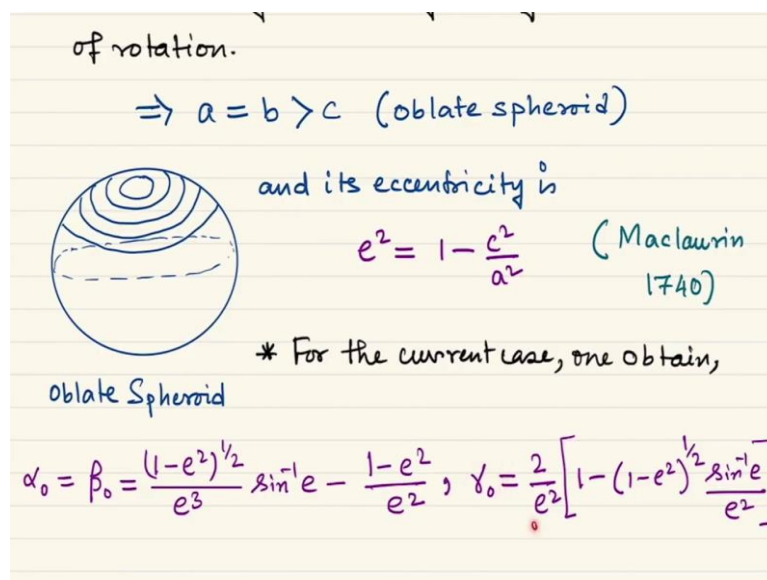 of rotation.
⇒ a = b > c (oblate spheroid)
and its eccentricity is
e² = 1 − c²/a² (Maclaurin
1740)
* For the current case, one obtain,
Oblate Spheroid
α₀ = β₀ = (1−e²)^½/e³ sin⁻¹e − (1−e²)/e², γ₀ = 2/e² [1−(1−e²)^½ sin⁻¹e/e²]